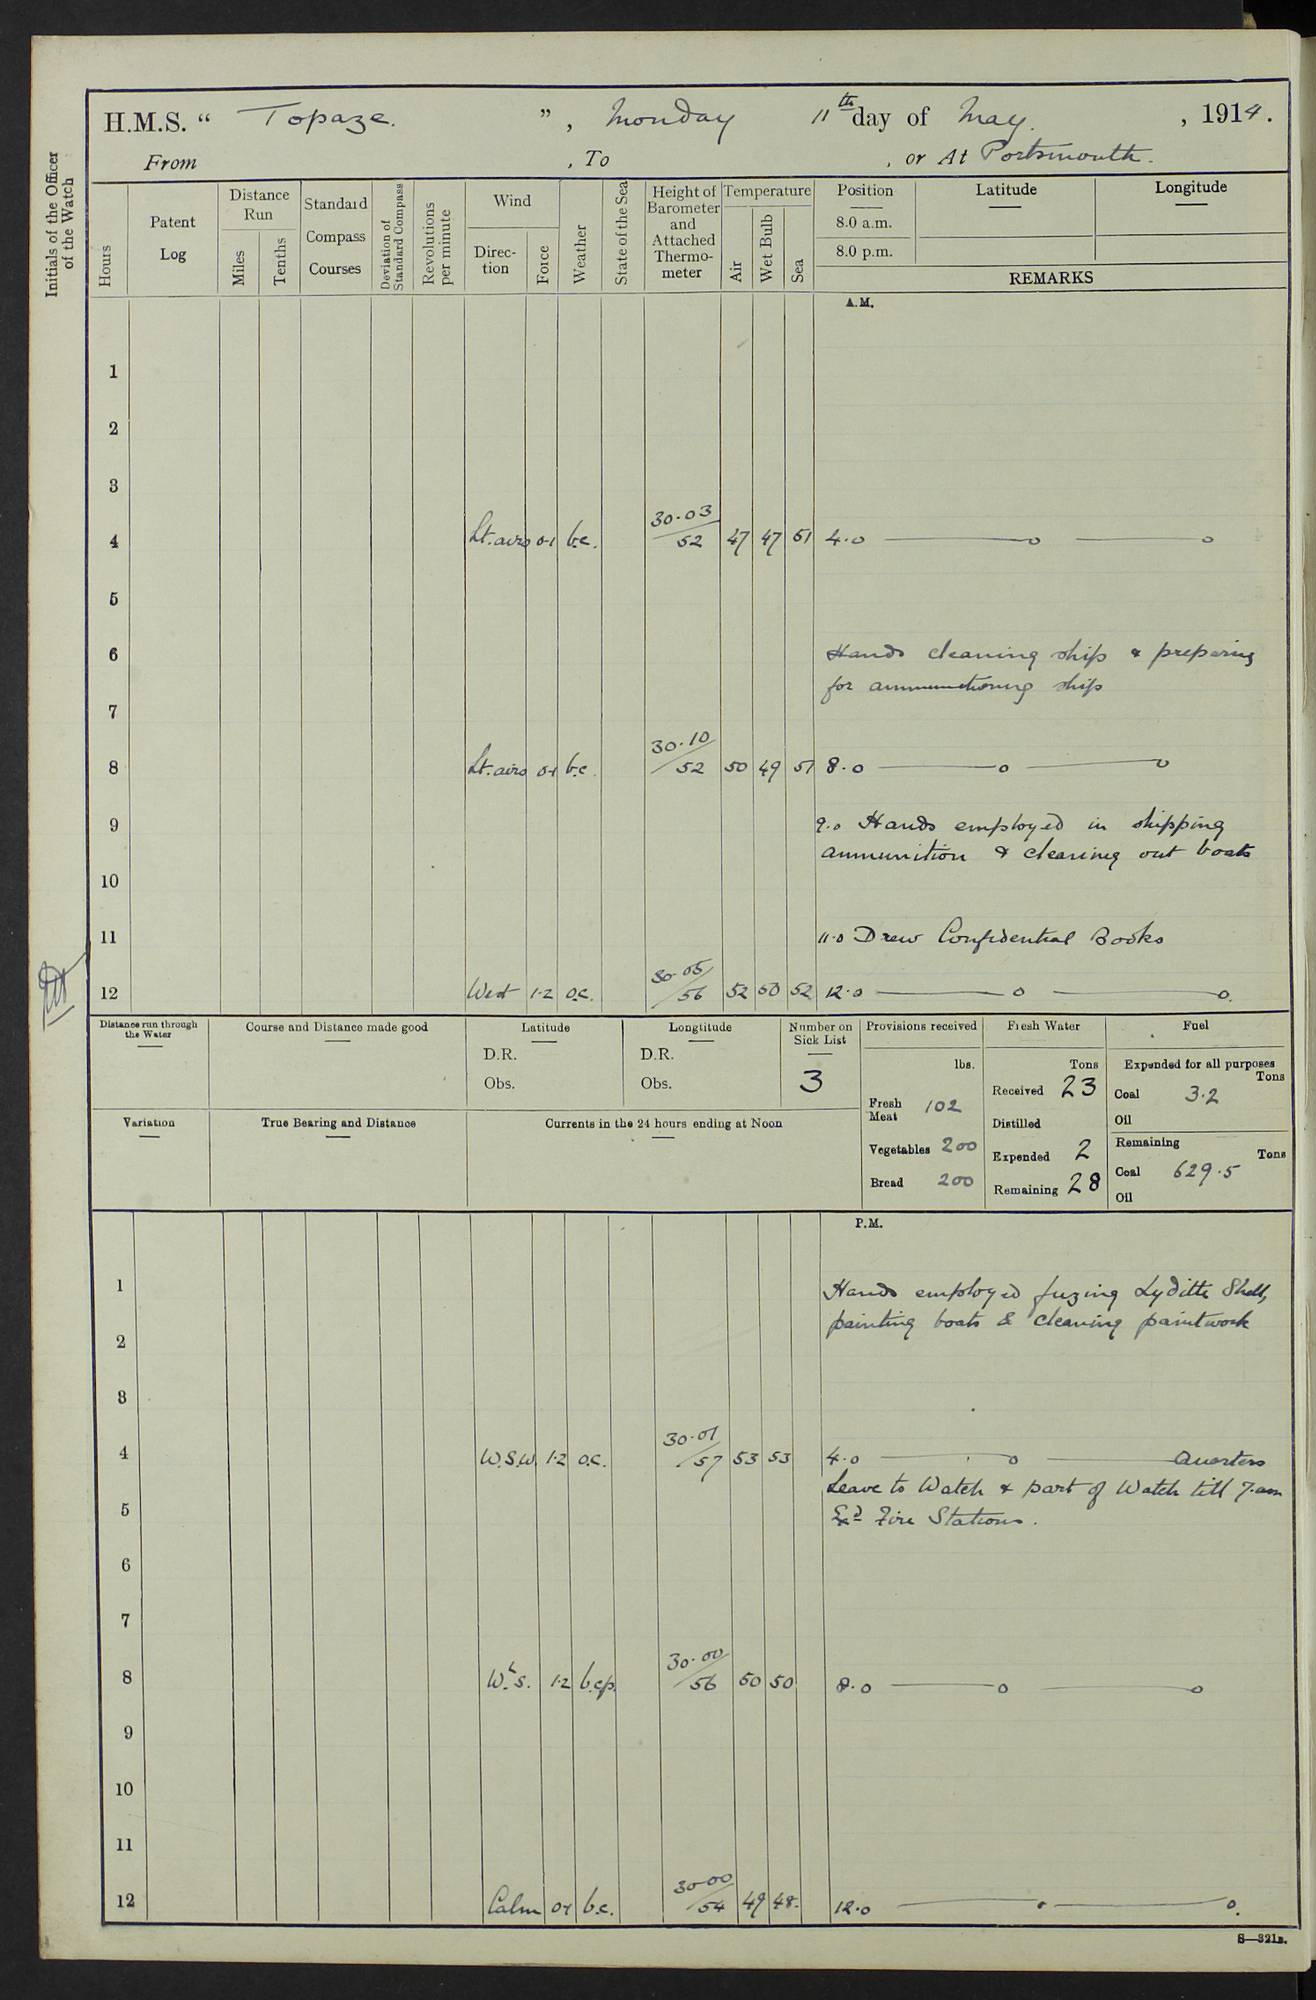 H.M.S. “ Topaze. ” , Monday 11th day of May. , 1914.
From , To , or At Portsmouth.
Initials of the Officer of the Watch
Hours
Patent Log
Distance Run
Miles
Tenths
Standard Compass Courses
Deviation of Standard Compass
Revolutions per minute
Wind
Direction
Force
Weather
State of the Sea
Height of Barometer and Attached Thermometer
Temperature
Air
Wet Bulb
Sea
Position
8.0 a.m.
8.0 p.m.
Latitude
Longitude
REMARKS
A.M.
1
2
3
4 Lt. airs 0-1 b.c. 30.03/52 47 47 51 4.0 — o — o
5
6 Hands cleaning ship & preparing
for ammunitioning ship
7
8 Lt. airs 0-1 b.c. 30.10/52 50 49 51 8.0 — o — o
9 9.0 Hands employed in shipping
ammunition & cleaning out boats
10
11 11.0 Drew Confidential Books
12 West 1-2 o.c. 30.05/56 52 50 52 12.0 — o — o.
Distance run through the Water
Course and Distance made good
Latitude
D.R.
Obs.
Longtitude
D.R.
Obs.
Number on Sick List
3
Provisions received
lbs.
Fresh Meat 102
Vegetables 200
Bread 200
Fresh Water
Tons
Received 23
Distilled
Expended 2
Remaining 28
Fuel
Expended for all purposes
Tons
Coal 3.2
Oil
Remaining
Tons
Coal 629.5
Oil
Variation
True Bearing and Distance
Currents in the 24 hours ending at Noon
P.M.
1 Hands employed fuzing Lyditte Shell,
painting boats & cleaning paintwork
2
3
4 W.S.W. 1-2 o.c. 30.01/57 53 53 4.0 — o — Quarters
Leave to Watch & part of Watch till 7.am
5 Exd Fire Stations.
6
7
8 W.b S. 1-2 b.cp. 30.00/56 50 50 8.0 — o — o
9
10
11
12 Calm 0-1 b.c. 30.00/54 49 48. 12.0 — o — o.
S—321B.